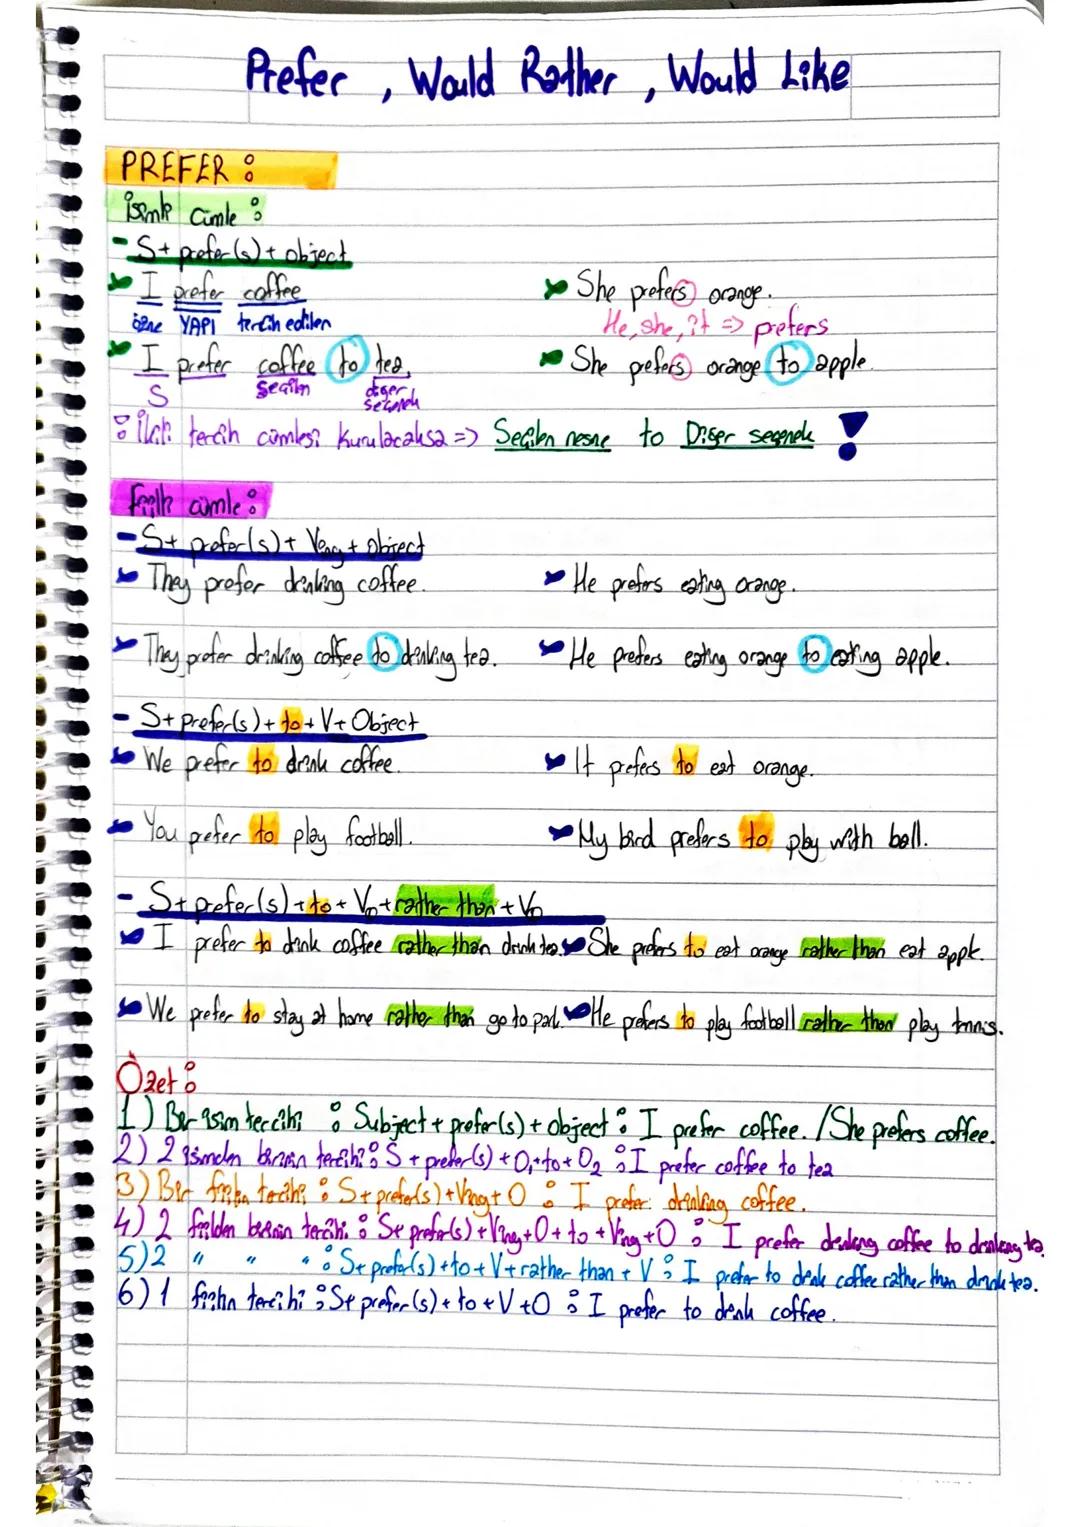 Prefer , Would Rather , Would Like
PREFER :
İsimli cümle :
- S + prefer(s) + object
I prefer coffee
özne YAPI tercih edilen
She prefers orange.
He, she, it => prefers
I prefer coffee to tea
S seçilen diğer seçenek
She prefers orange to apple.
: İkili tercih cümlesi kurulacaksa => Seçilen nesne to Diğer seçenek !
Fiilli cümle :
- S + prefer(s) + Ving + Object
They prefer drinking coffee. He prefers eating orange.
They prefer drinking coffee to drinking tea. He prefers eating orange to eating apple.
- S + prefer(s) + to + V + Object
We prefer to drink coffee. It prefers to eat orange.
You prefer to play football. My bird prefers to play with ball.
- S + prefer(s) + to + V0 + rather than + V0
I prefer to drink coffee rather than drink tea. She prefers to eat orange rather than eat apple.
We prefer to stay at home rather than go to park. He prefers to play football rather than play tennis.
Özet :
1) Bir isim tercihi : Subject + prefer(s) + object : I prefer coffee. / She prefers coffee.
2) 2 isimden birinin tercihi : S + prefer(s) + O1 + to + O2 : I prefer coffee to tea
3) Bir fiilin tercihi : S + prefer(s) + Ving + O : I prefer drinking coffee.
4) 2 fiilden birinin tercihi : S + prefer(s) + Ving + O + to + Ving + O : I prefer drinking coffee to drinking tea.
5) 2 " " " : S + prefer(s) + to + V + rather than + V : I prefer to drink coffee rather than drink tea.
6) 1 fiilin tercihi : S + prefer(s) + to + V + O : I prefer to drink coffee.